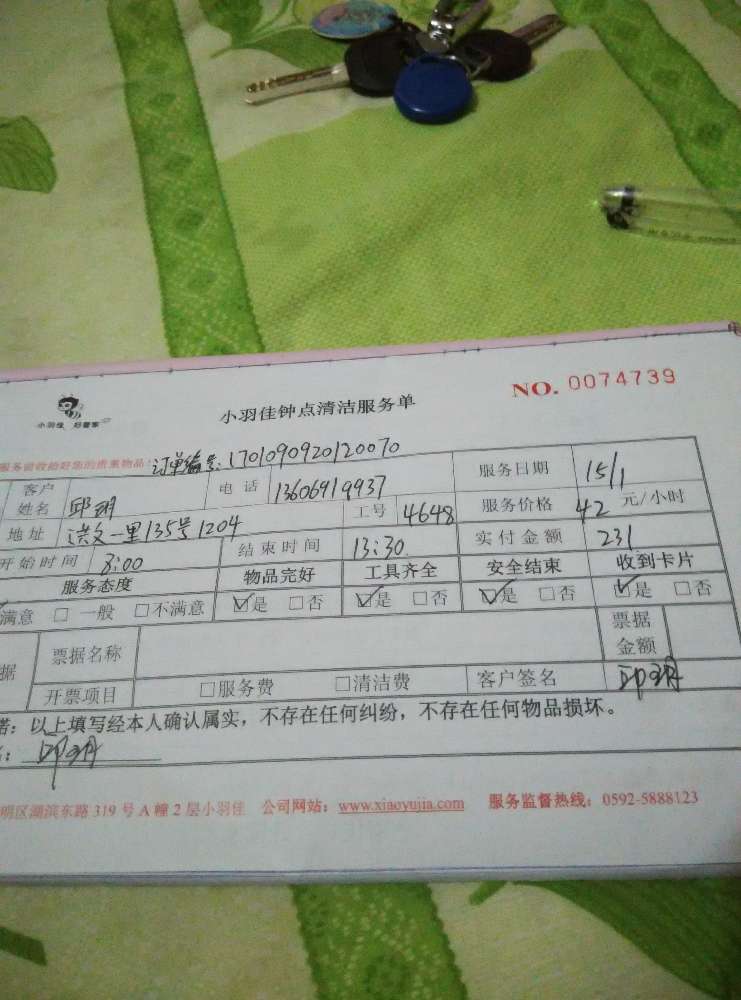 NO. 0074739
小羽佳 好管家
小羽佳钟点清洁服务单
服务前收拾好您的贵重物品! 订单编号:1701090920120070
客户姓名 邱玥 电话 13606919937 服务日期 15/1
地址 洪文一里135号1204 工号 4648 服务价格 42 元/小时
开始时间 8:00 结束时间 13:30 实付金额 231
服务态度 物品完好 工具齐全 安全结束 收到卡片
满意 □ 一般 □不满意 ☑是 □否 ☑是 □否 ☑是 □否 ☑是 □否
据 票据名称 票据金额
开票项目 □服务费 □清洁费 客户签名 邱玥
诺:以上填写经本人确认属实,不存在任何纠纷,不存在任何物品损坏。
名: 邱玥
明区湖滨东路 319 号 A 幢 2 层小羽佳 公司网站:www.xiaoyujia.com 服务监督热线:0592-5888123